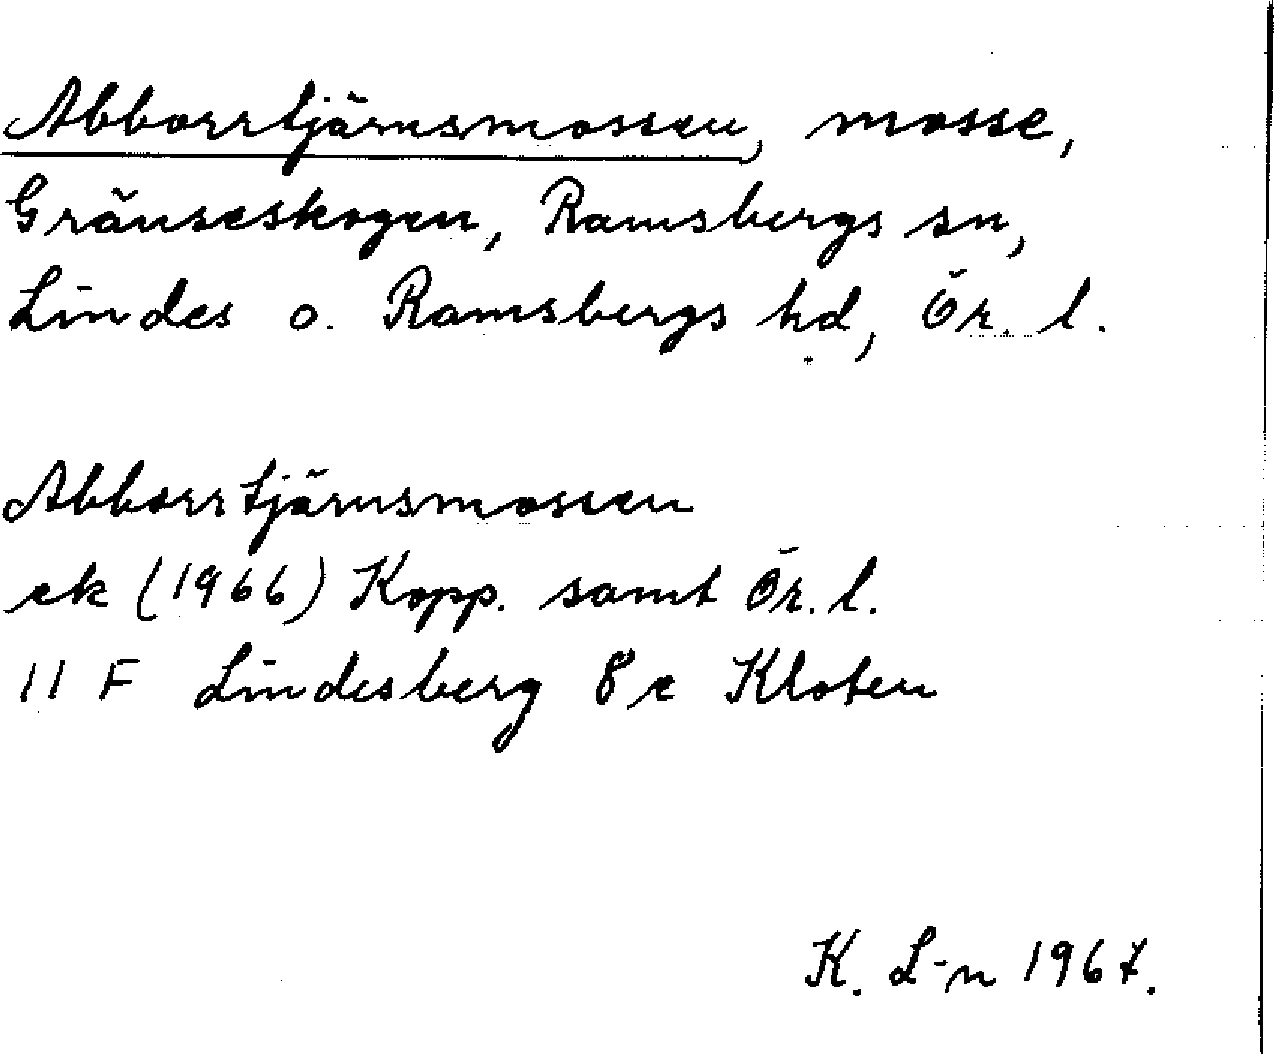 Abborrtjärnsmossen, mosse,
Gränseskogen, Ramsbergs sn,
Lindes o. Ramsbergs hd, Ör. l.
Abborrtjärnsmossen
ek (1966) Kopp. samt Ör. l.
11 F Lindesberg 8 e Kloten
K. L-n 1967.